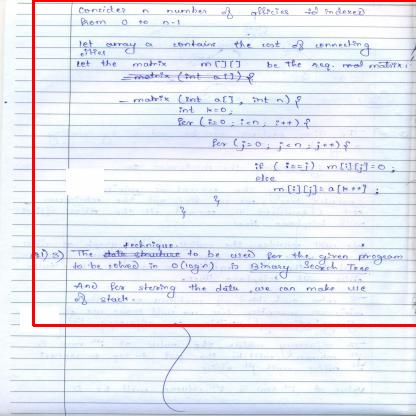 Consider n number of officies id indexed
from 0 to n-1
let array a contains the cost of connecting
cities
Let the matrix m[][] be the req. mat matrix.
matrix (int a[]) {
matrix (int a[], int n) {
int k=0;
for (i=0; i<n; i++) {
for (j=0; j<n; j++) {
if (i==j) m[i][j]=0;
else
m[i][j]=a[k++];
}
}
technique
The data structure to be used for the given program
to be solved in O(logn) is Binary Search Tree
And for storing the data, we can make use
of stack.